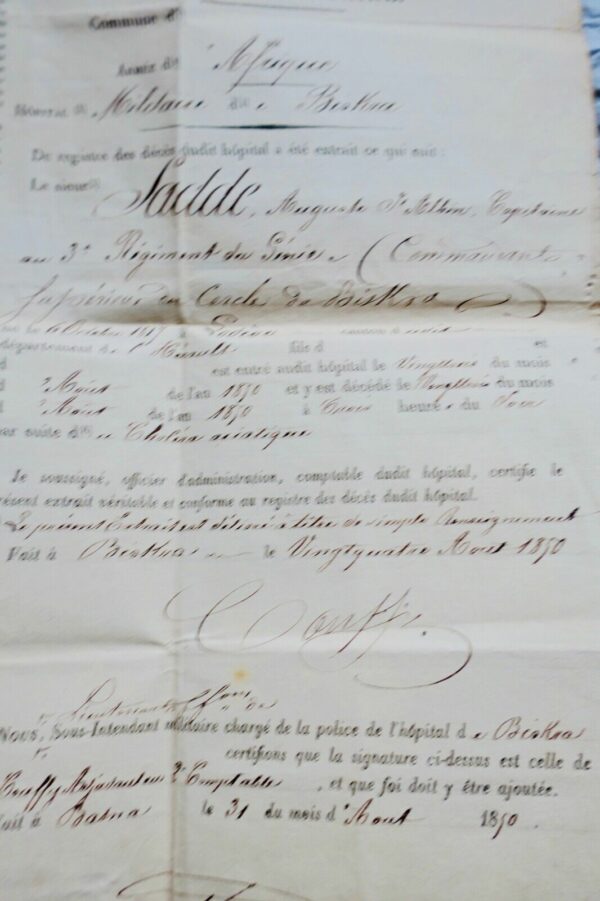 Commune d
Armée d' Afrique
Hôpital Militaire d e Biskra
Du registre des décès dudit hôpital a été extrait ce qui suit :
Le sieur Sadde, Auguste St Alban, Capitaine
au 3e Régiment du Génie (Commandant
Supérieur du Cercle de Biskra)
né le 6 Octobre 1817 à Lodève
département de l'Hérault fils d et
est entré audit hôpital le Vingttrois du mois
d'Août de l'an 1850 et y est décédé le Vingttrois du mois
d'Août de l'an 1850 à trois heures du Soir
par suite d e Choléra asiatique
Je soussigné, officier d'administration, comptable dudit hôpital, certifie le
présent extrait véritable et conforme au registre des décès dudit hôpital.
Le présent Extrait est délivré à titre de simple Renseignement
Fait à Biskra le Vingtquatre Août 1850
Couffy
Lieutenant ffons de
Nous, Sous-Intendant militaire chargé de la police de l'hôpital d e Biskra
certifions que la signature ci-dessus est celle de
Couffy Adjudant en 2d Comptable , et que foi doit y être ajoutée.
Fait à Batna le 31 du mois d'Août 1850.